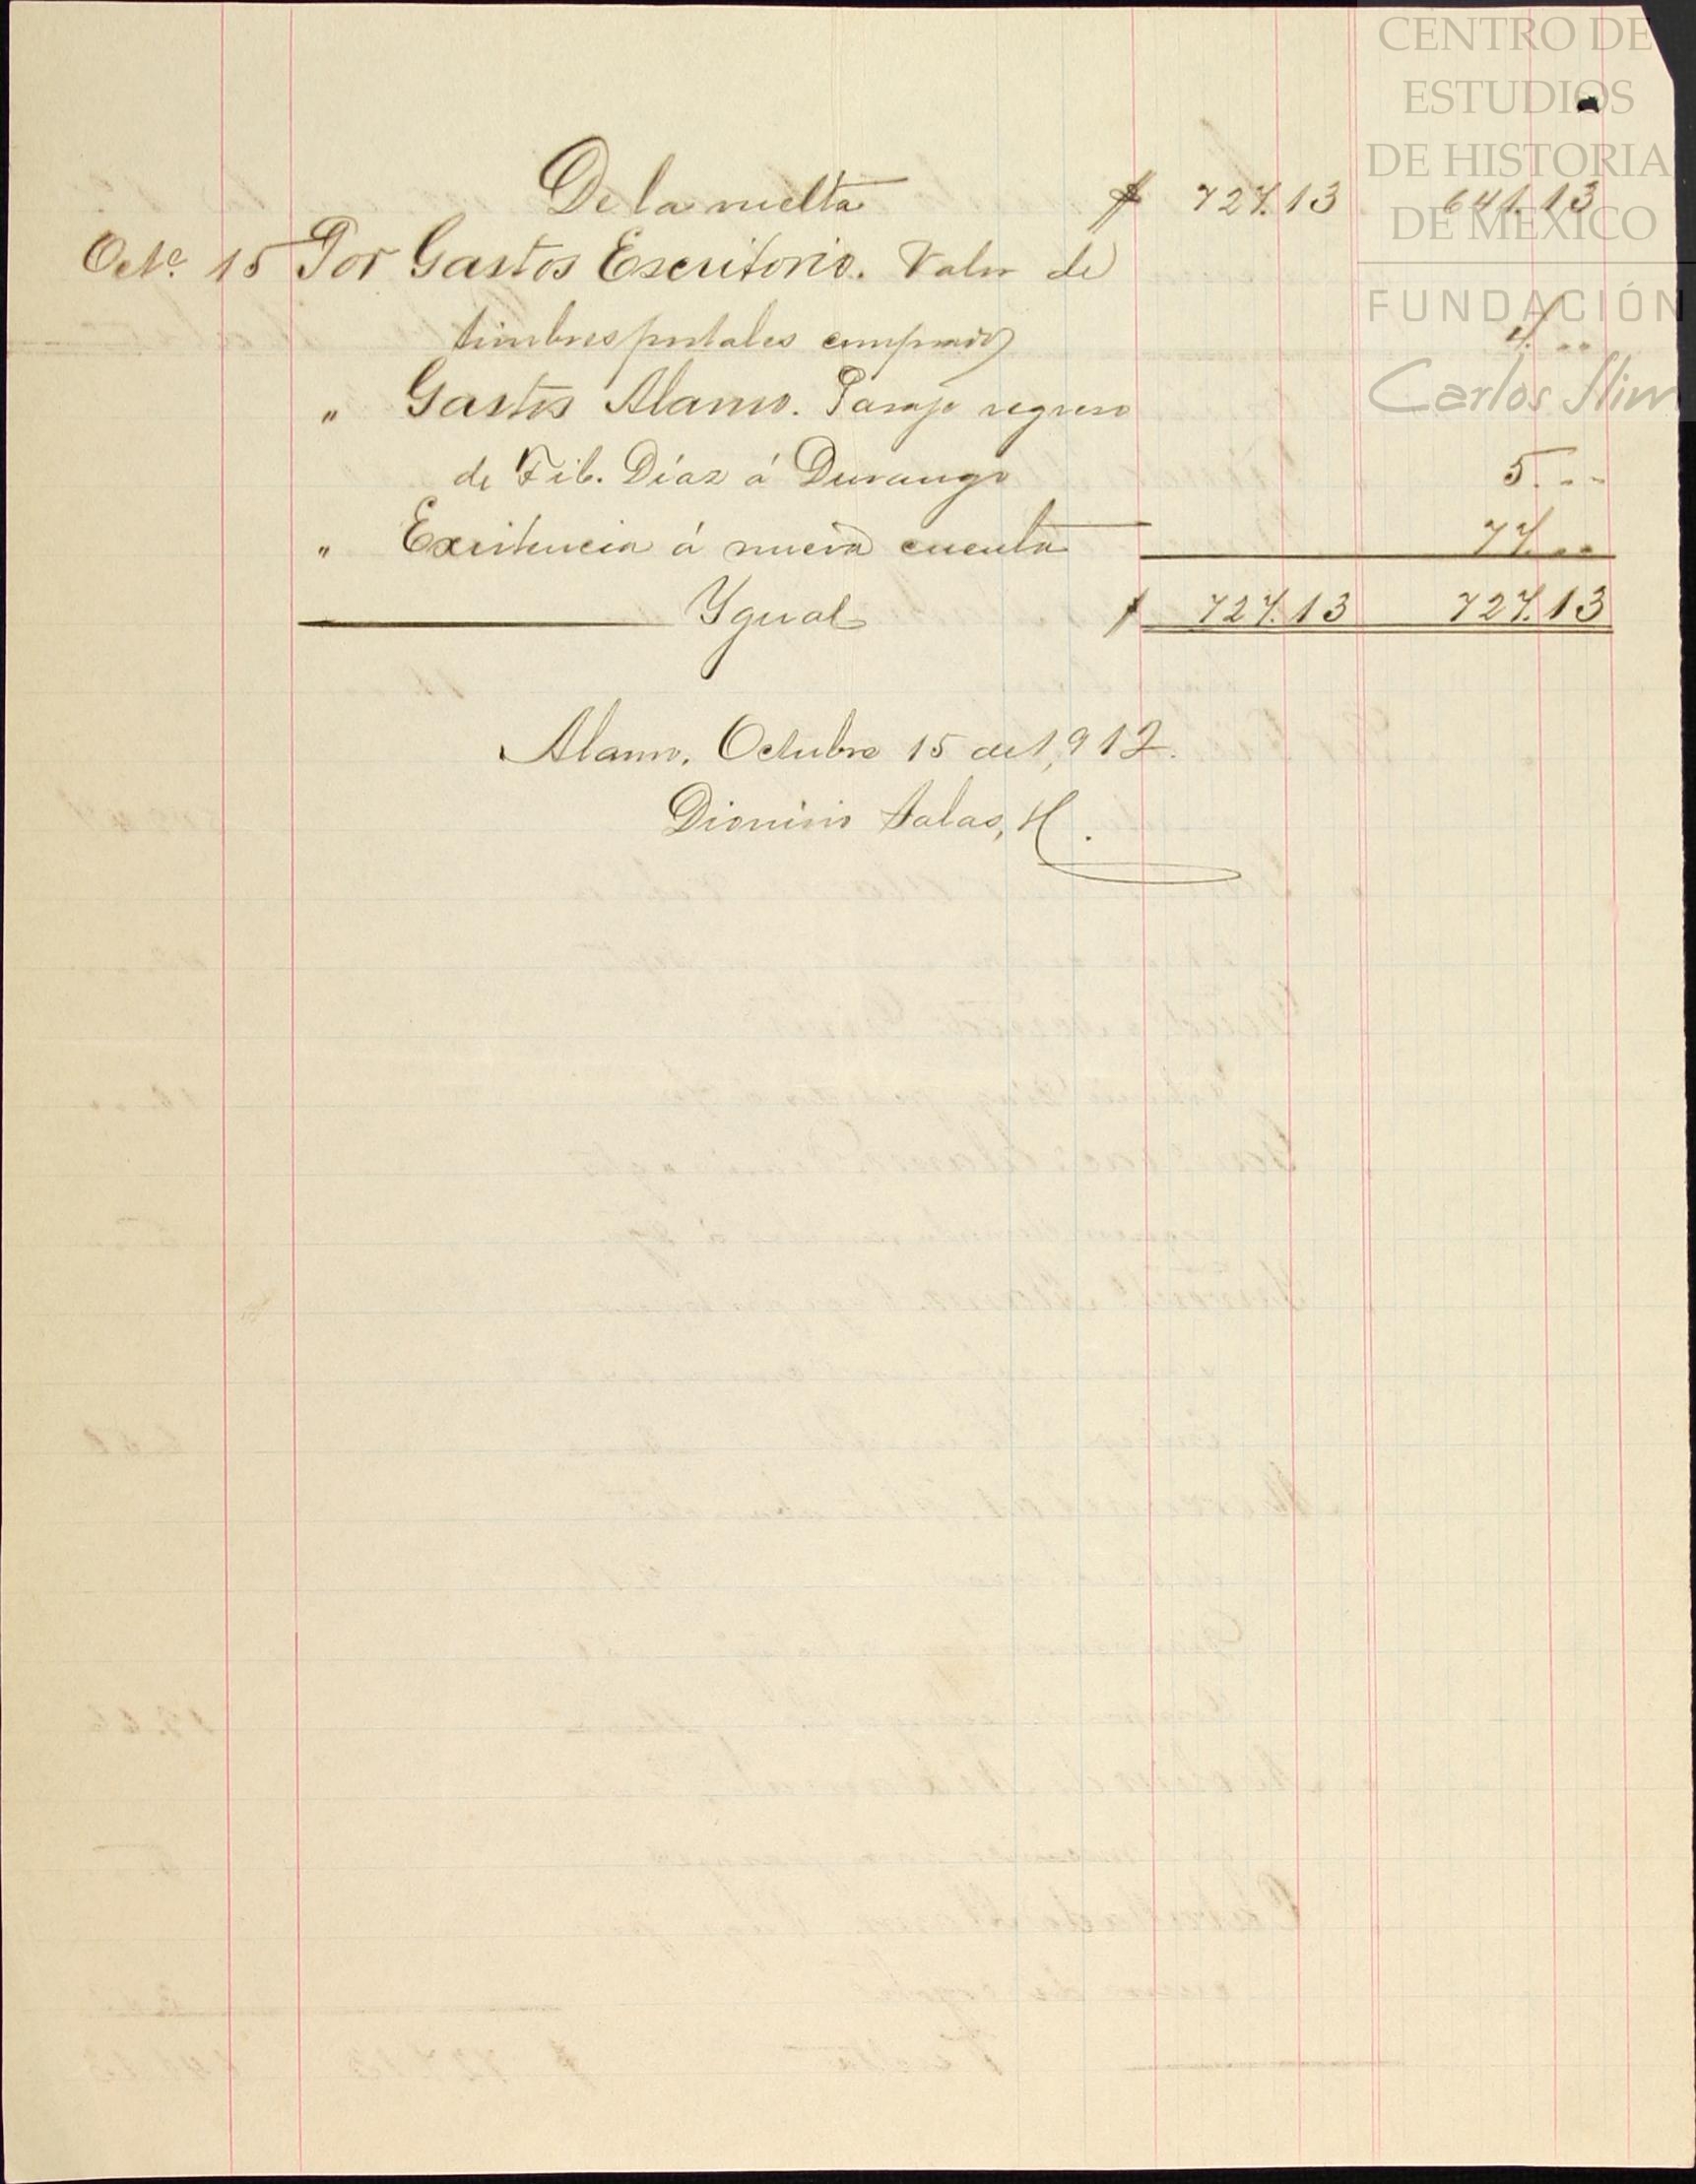 CENTRO DE
ESTUDIOS
DE HISTORIA
DE MÉXICO
FUNDACIÓN
Carlos Slim
De la vuelta $ 727.13 641.13
Octe. 15 Por Gastos Escritorio. Valor de
timbres postales comprados 4. --
" Gastos Alamo. Pasaje regreso
de Fib. Díaz á Durango 5. --
" Existencia á nueva cuenta 77. --
Ygual $ 727.13 727.13
Alamo, Octubre 15 de 1,912.
Dionisio Salas, H.